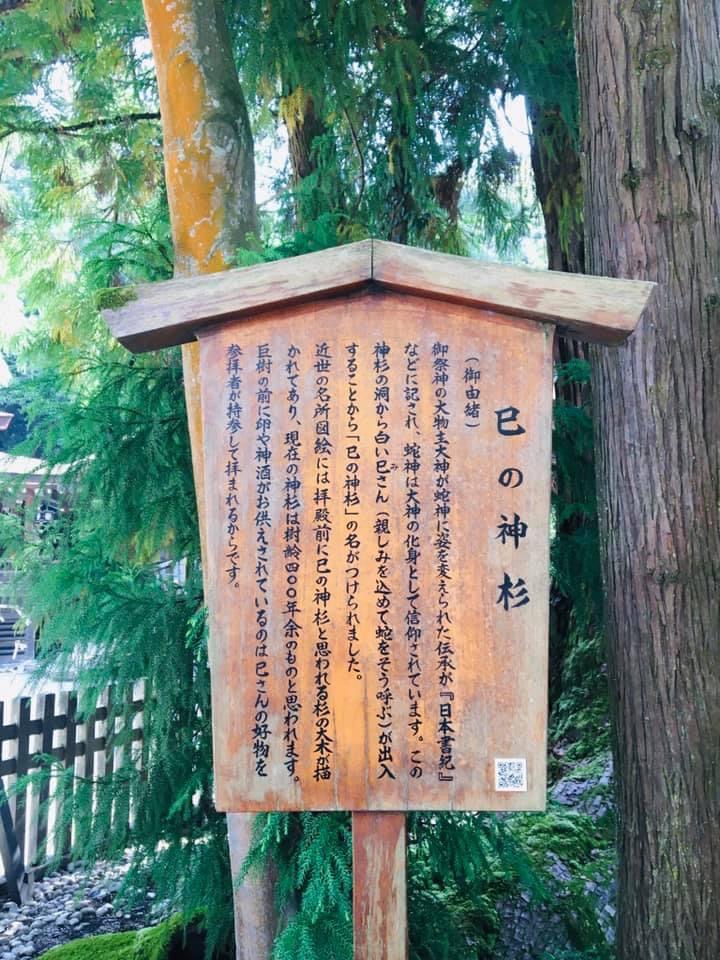 巳の神杉
（御由緒）
御祭神の大物主大神が蛇神に姿を変えられた伝承が『日本書紀』
などに記され、蛇神は大神の化身として信仰されています。この
神杉の洞から白い巳さん（親しみを込めて蛇をそう呼ぶ）が出入
み
することから「巳の神杉」の名がつけられました。
近世の名所図絵には拝殿前に巳の神杉と思われる杉の大木が描
かれてあり、現在の神杉は樹齢四〇〇年余のものと思われます。
巨樹の前に卵や神酒がお供えされているのは巳さんの好物を
参拝者が持参して拝まれるからです。